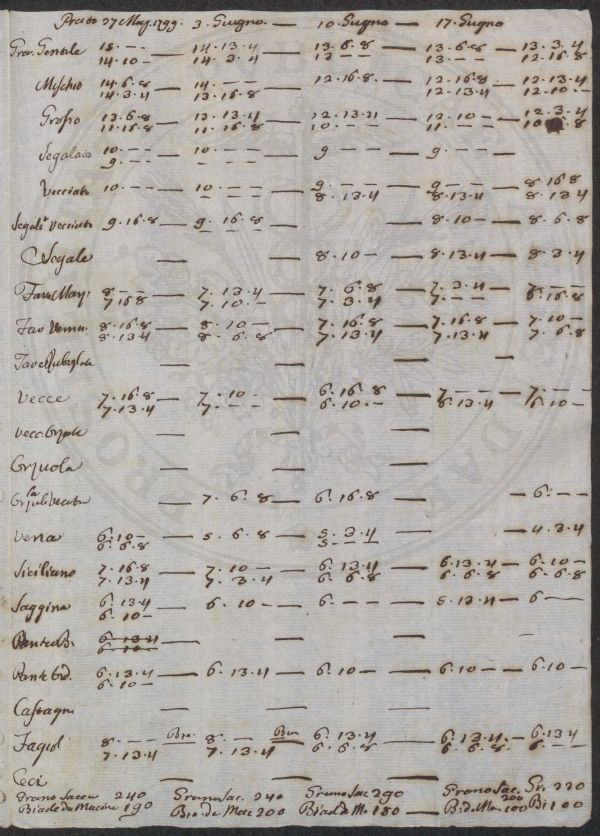 Prato 27 Mag. 1799. 3. Giugno — 10. Giugno — 17. Giugno
Gran. Gentile 15.— — 14.13.4 — 13.6.8 — 13.6.8 — 13.3.4
14.10 — 14.3.4 13 — — 13.— — 12.16.8
Mischio 14.6.8 — 14.— — — 12.16.8 12.16.8 — 12.13.4
14.3.4 13.16.8 12.13.4 12.10.—
Grosso 13.6.8 — 13.13.4 — 12.13.4 — 12.10 — — 12.3.4
11.16.8 11.16.8 10.— — 11.— — 10 .8
Segalato 10.— — — 10.— — — 9 — — — 9.— — —
9.— — — — —
Vecciato 10.— — — 10.— — — 9.— — — 9— — — 8.16.8
8.13.4 8.13.4 8.13.4
Segal.º Vecciato 9.16.8 — 9.16.8 — — 8.10 — — 8.6.8
Segale — — 8.10 — — 8.13.4 — 8.3.4
Fave Mag. 8.— — — 7.13.4 — 7.6.8 — 7.3.4 — 7.— —
7.16.8 7.10.— 7.3.4 7.— — 6.16.8
Fav Vernin. 8.16.8 — 8.10 — — 7.16.8 — 7.16.8 — 7.10 —
8.13.4 8.6.8 7.13.4 7.13.4 7.6.8
— — — —
Vecce 7.16.8 — 7.10 — — 6.16.8 — 7.— — — 7.— —
7.13.4 7.— — 6.10.— 6.13.4 6.10 —
— — —
Cijuola — — —
— 7.6.8 — 6.16.8 — — 6.— —
Vena 6.10 — — 5.6.8 — 5.3.4 — 4.3.4
6.6.8 5.— —
Siciliano 7.16.8 — 7.10 — — 6.13.4 — 6.13.4 — 6.10 —
7.13.4 7.3.4 6.6.8 6.6.8 6.6.8
Saggina 6.13.4 — 6.10 — — 6.— — — 5.13.4 — 6 —
6.10 —
6.13.4 — — — —
6.10 —
6.13.4 — 6.13.4 — 6.10 — — 6.10 — — 6.10 —
6.10 —
Castagn. — — —
Fagiol 8.— — — 8.— — — 6.13.4 — 6.13.4 — 6.13.4
7.13.4 7.13.4 6.6.8 6.6.8 6.— —
Ceci — — — —
Grano Sacca 240 Grano Sac. 240 Grano Sac 290 Grano Sac. 200 Gr. 220
Biade da Macine 190 Bia. da Mac 200 Biad da Ma 180 Bi. da Ma. 100 Bi 100